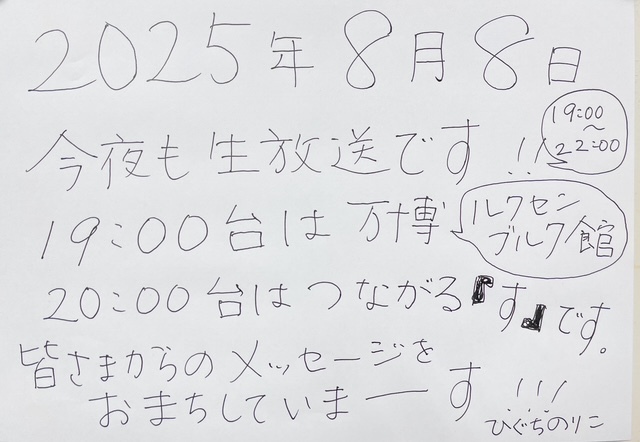 2025年8月8日
今夜も生放送です!!!
19:00
〜
22:00
19:00台は万博
ルクセン
ブルク館
20:00台はつながる『す』です。
皆さまからのメッセージを
おまちしていまーーす!!!
ひぐちのりこ